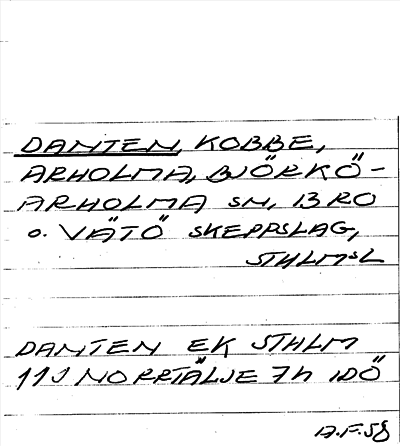 DANTEN, KOBBE,
ARHOLMA, BJÖRKÖ-
ARHOLMA SN, BRO
O. VÄTÖ SKEPPSLAG,
STHLMSL
DANTEN EK STHLM
11J NORRTÄLJE 7h IDÖ
A.F.58